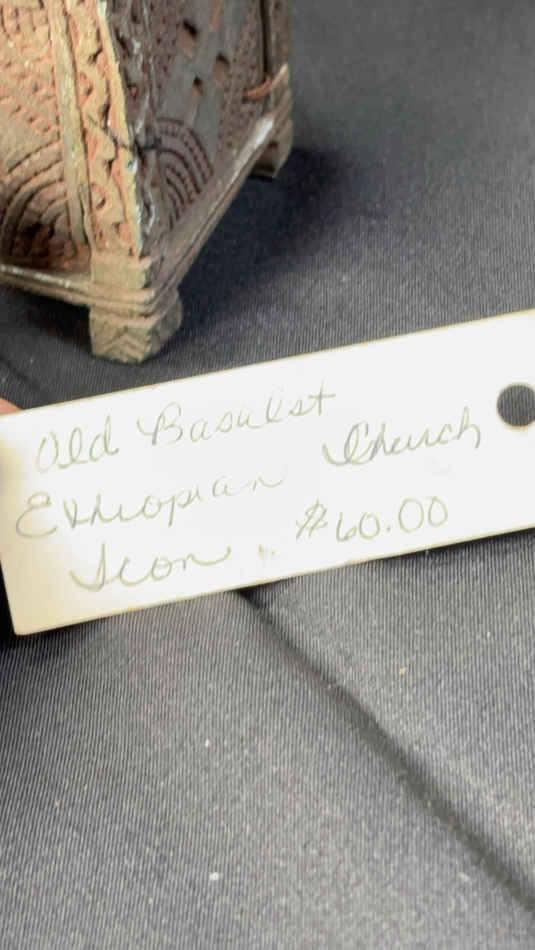 Old Basulist
Ethiopian Church
Icon $60.00